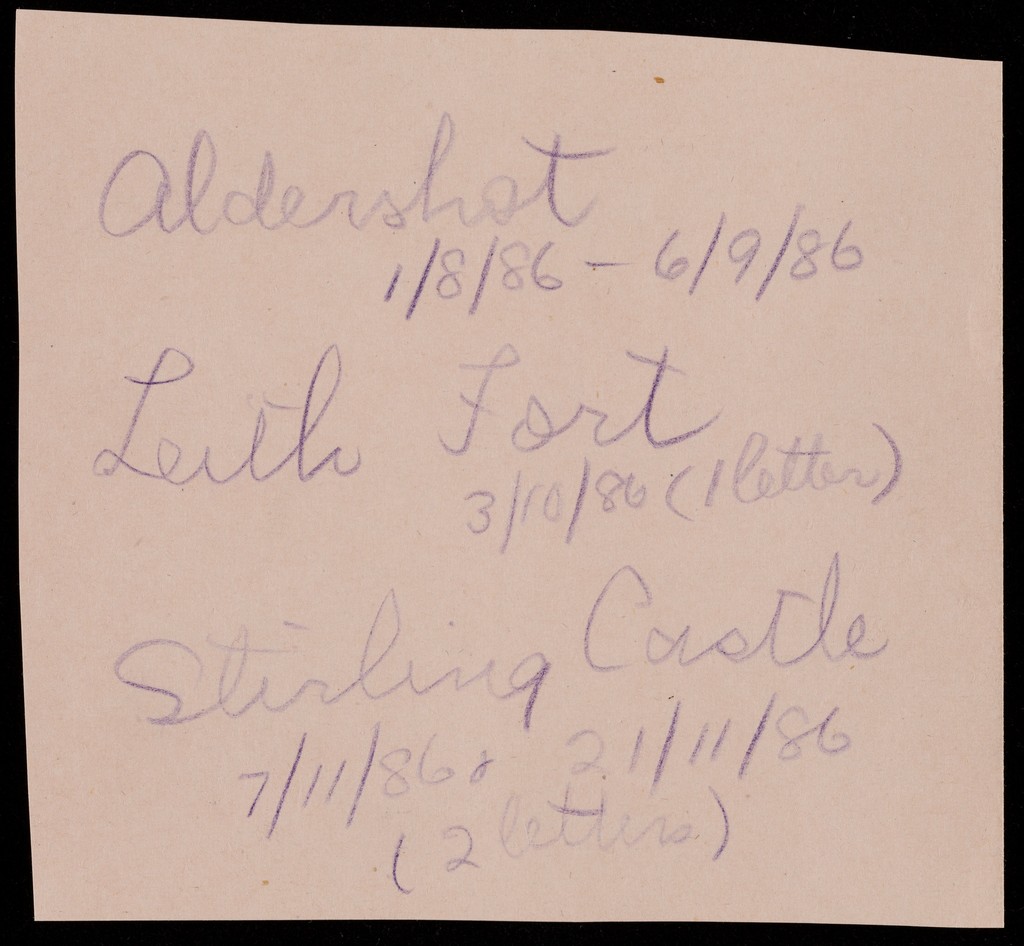 Aldershot
1/8/86 - 6/9/86
Leith Fort
3/10/86 (1 letter)
Stirling Castle
7/11/86 & 21/11/86
(2 letters)